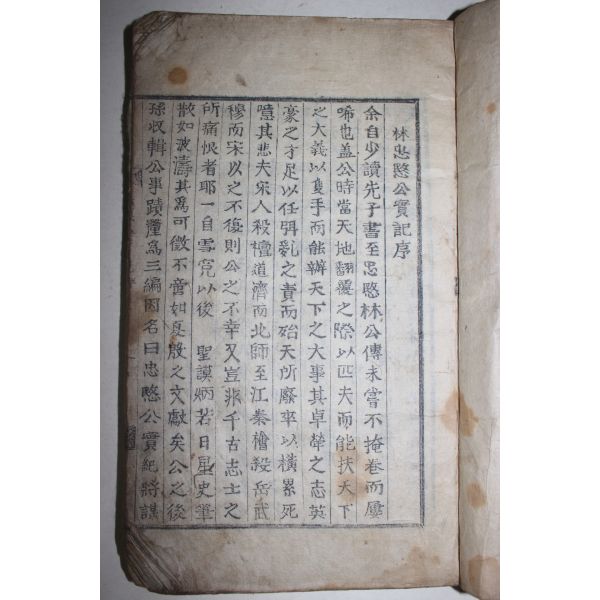 林忠愍公實記序
余自少讀先子書至忠愍林公傳未嘗不掩卷而屢
唏也盖公時當天地翻覆之際以匹夫而能扶天下
之大義以隻手而能辦天下之大事其卓犖之志英
豪之才足以任弭亂之責而殆天所廢卒以橫累死
噫其悲夫宋人殺檀道濟而北師至江秦檜殺岳武
穆而宋以之不復則公之不幸又豈非千古志士之
所痛恨者耶一自雪冤以後 聖謨炳若日星史筆
散如波濤其爲可徵不啻如夏殷之文獻矣公之後
孫收輯公事蹟釐爲三編因名曰忠愍公實紀將謀